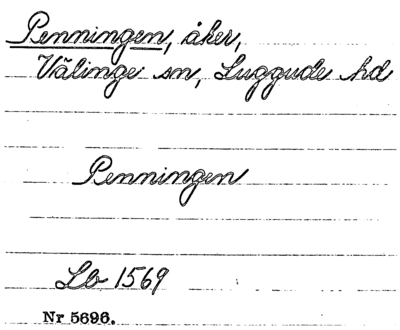 Penningen, åker,
Välinge sn, Luggude hd
Penningen
Lb 1569
Nr 5696.